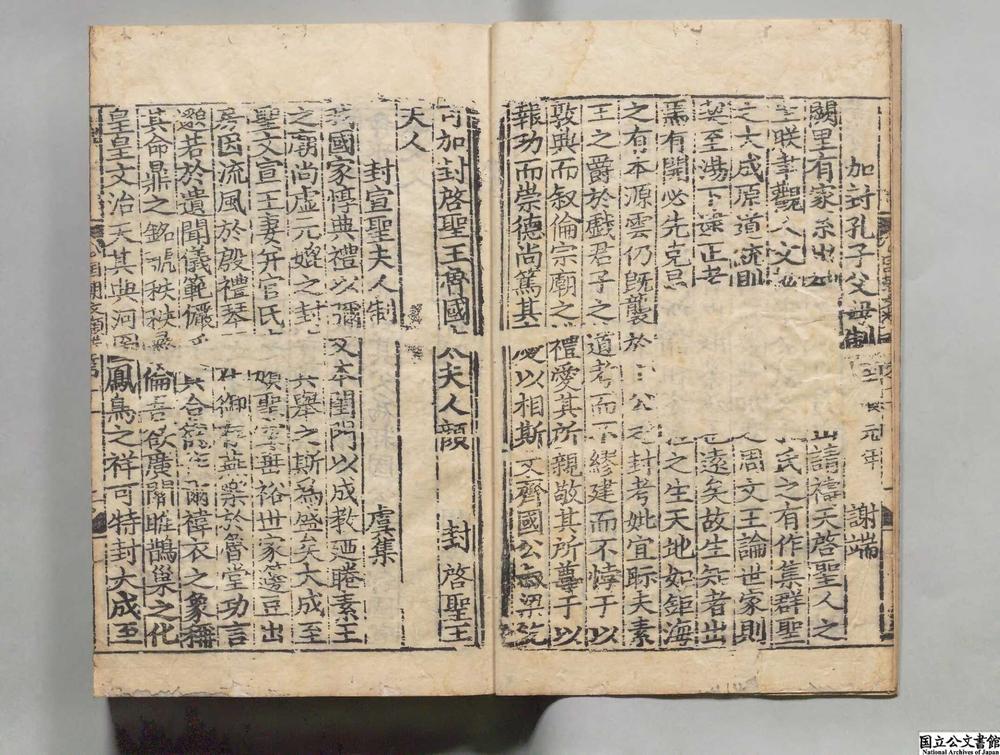 加封孔子父母制 元年 謝端
闕里有家系出 請禱天啓聖人之
朕聿觀人文 氏之有作集群聖
之大成原道統則 周文王論世家則
契至湯下逮正考 遠矣故生知者出
焉有開必先克昌 之生天地如鉅海
之有本源雲仍旣襲於 公之封考妣宜眎夫素
王之爵於戲君子之道考而不繆建而不悖于以
敦典而叙倫宗廟之禮愛其所親敬其所尊于以
報功而崇德尚篤其 以相斯文齊國公叔梁紇
可加封啓聖王魯國 夫人顏 封啓聖王
夫人
封宣聖夫人制 虞集
我國家惇典禮以彌文本閨門以成教廼睠素王
之廟尚虛元媲之封 其舉之斯爲盛矣大成至
聖文宣王妻幷官氏 嬪聖室垂裕世家籩豆出
房因流風於殷禮琴 在御 燕樂於魯堂功言
邈若於遺聞儀範儼 合 爾褘衣之象稱
其命鼎之銘號秩秩 倫吾欲廣關雎鵲巢之化
皇皇文治天其與河圖鳳鳥之祥可特封大成至
国立公文書館
National Archives of Japan